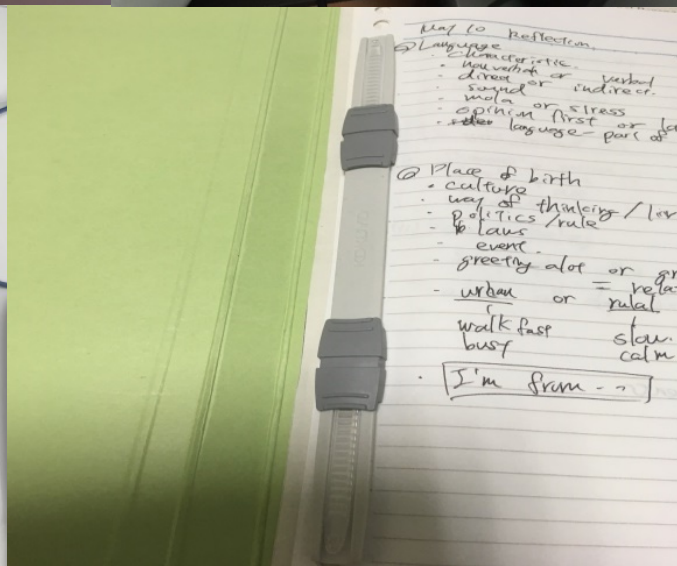 May 10 Reflection.
@ Language
- characteristic.
- nonverbal or verbal
- direct or indirect.
- sound
- mola or stress
- opinion first or la
- language - part of
@ Place of birth
• culture
- way of thinking /
- politics /rule
- laws
- event.
- greeting alot or gr
= rela
- urban or rulal
walk fast slow.
busy calm
• I'm from - -